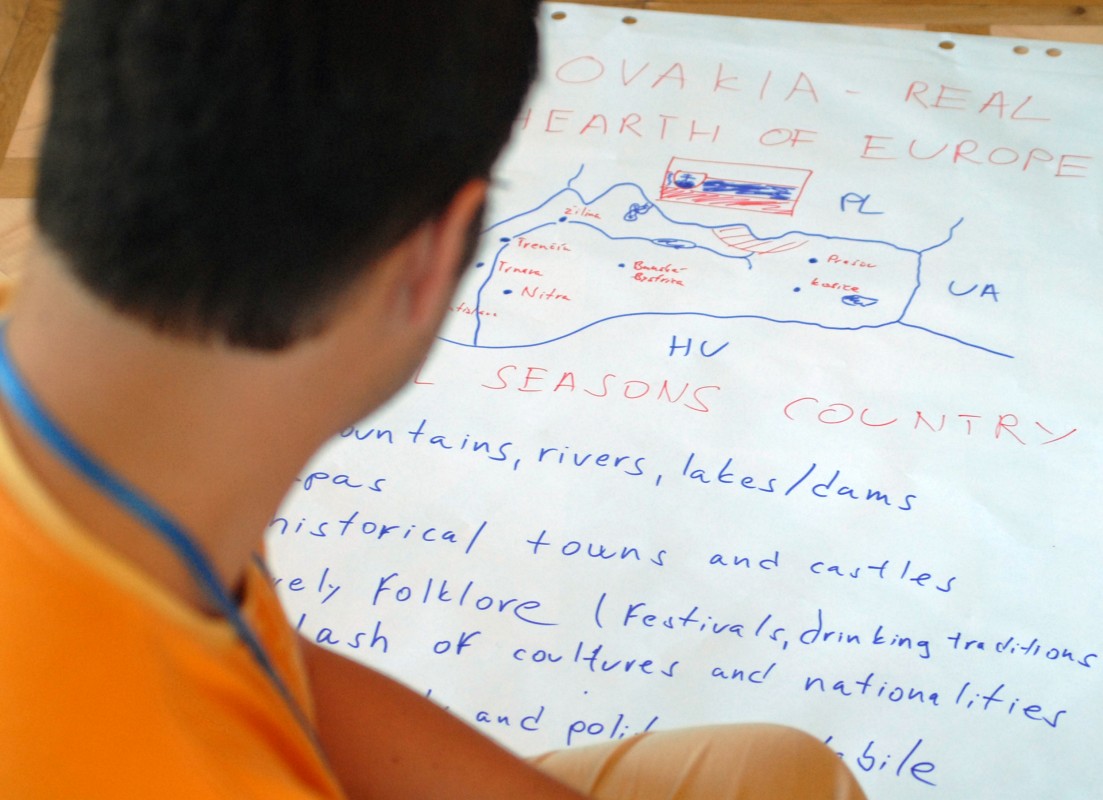 OVAKIA - REAL
HEARTH OF EUROPE
PL
žilina
Trenčín
Trnava
Nitra
Banská
Bystrica
Prešov
košice
UA
HU
L SEASONS COUNTRY
ountains, rivers, lakes/dams
spas
historical towns and castles
vely Folklore (Festivals, drinking traditions
lash of coultures and nationalities
and polit bile